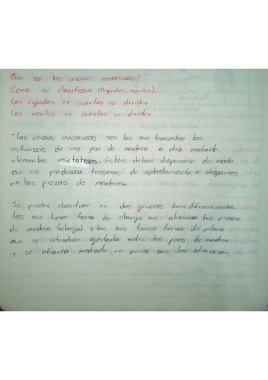 Que son las uniones mecanicas?
Como se clasifican (Rigidos, moviles).
Los rigidos en cuantos se dividen
Los moviles en cuantos se dividen
- Las uniones mecanicas son las que transmiten los
esfuerzos de una pieza de madera a otra mediante
elementos metalicos. Estos deben disponerse de modo
que no produzcan tensiones de aplastamiento o desgarres
en las piezas de madera.
Se pueden clasificar en dos grupos bien diferenciados
los que tienen forma de clavija que atraviesa las piezas
de madera (clavijas) y los que tienen forma de placa
que se introduce ajustada entre dos piezas de madera
y se afianza mediante un perno que las atraviesa.